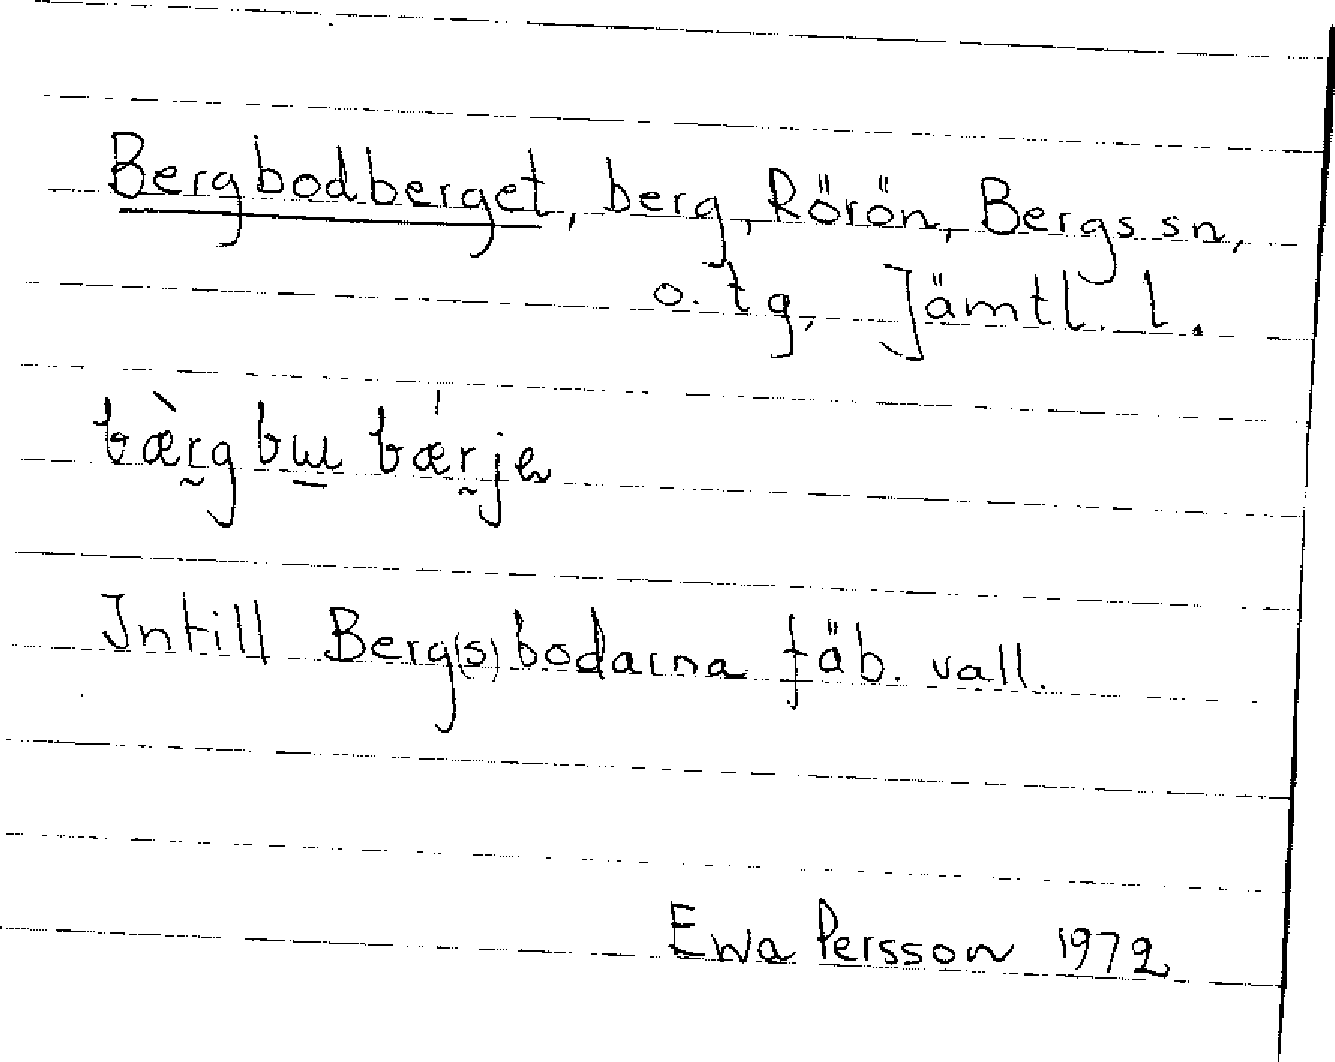 Bergbodberget, berg, Rörön, Bergs sn,
o. tg, Jämtl. l.
bæ̀r̰gbɯ̲ bæ̍r̰je
Intill Berg(s)bodarna fäb. vall.
Ewa Persson 1972